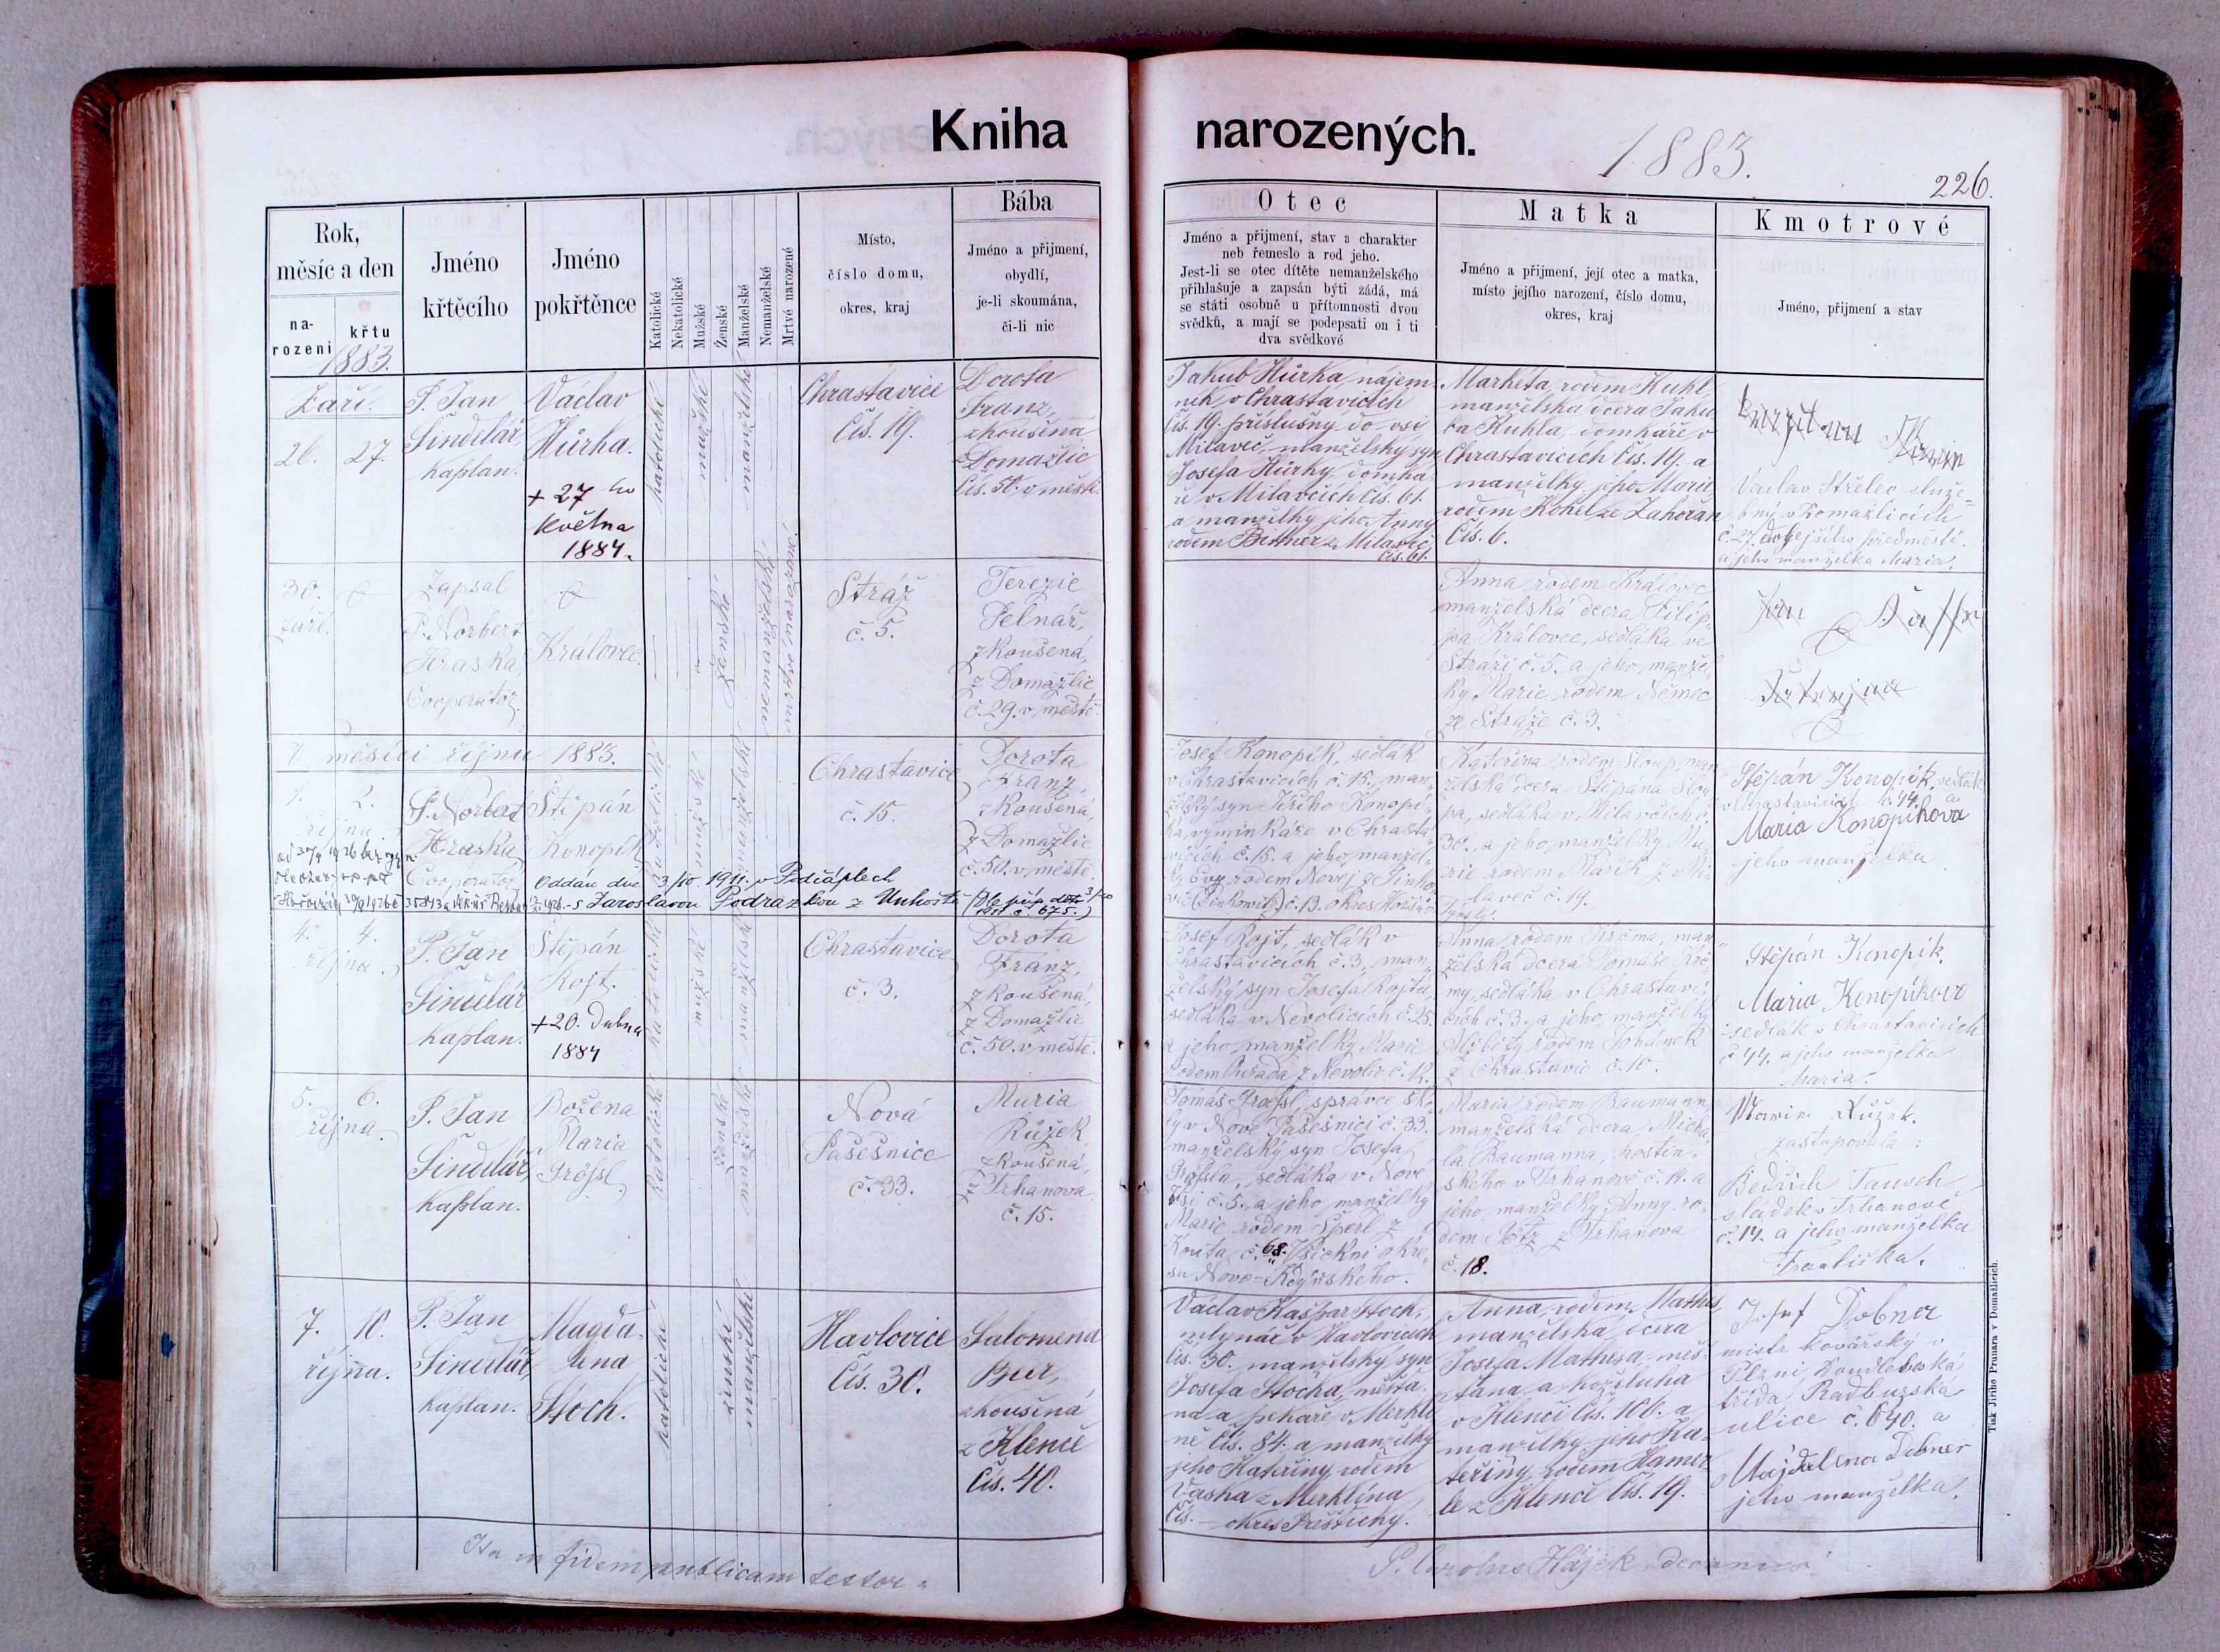 Kniha narozených.
1883.
226.
Rok,
měsíc a den
na-
rozeni
křtu
1883.
Jméno
křtěcího
Jméno
pokřtěnce
Katolické
Nekatolické
Mužské
Ženské
Manželské
Nemanželské
Mrtvé narozené
Místo,
číslo domu,
okres, kraj
Bába
Jméno a přijmení,
obydlí,
je-li skoumána,
či-li nic
Otec
Jméno a přijmení, stav a charakter
neb řemeslo a rod jeho.
Jest-li se otec dítěte nemanželského
přihlašuje a zapsán býti žádá, má
se státi osobně u přítomnosti dvou
svědků, a mají se podepsati on i ti
dva svědkové
Matka
Jméno a přijmení, její otec a matka,
místo jejího narození, číslo domu,
okres, kraj
Kmotrové
Jméno, přijmení a stav
Září.
26. 27.
P. Jan
Šindelář,
kaplan.
Václav
Hůrka.
+ 27 ho
května
1884.
katolické
mužské
manželské
Chrastavice
Čís. 19.
Dorota
Franz,
zkoušená
z Domažlic
Čís. 50. v městě.
Jakub Hůrka, nájem-
ník v Chrastavicích
Čís. 19. příslušný do vsi
Milaveč, manželský syn
Josefa Hůrky, domka-
ře v Milavčích Čís. 61.
a manželky jeho Anny
rodem Bittner z Milavčí
Čís. 61.
Markéta, rodem Kuhl,
manželská dcera Jaku-
ba Kuhla, domkáře v
Chrastavicích Čís. 19. a
manželky jeho Marie,
rodem Kohel ze Zahořan
Čís. 6.
Václav Střelec služe-
bný v Domažlicích
č. 27. dolejšího předměstí.
a jeho manželka Maria.
30.
září.
Zapsal
P. Norbert
Hraska,
Cooperator.
Královec.
ženské
nemanželské
mrtvě narozené
Stráž
č. 5.
Terezie
Pelnář,
zkoušená,
z Domažlic
č. 29. v městě.
Anna rodem Královec
manželská dcera Filip-
pa Královce, sedláka ve
Stráži č. 5. a jeho manžel-
ky Marie rodem Němec
ze Stráže č. 3.
V měsíci říjnu 1883.
1. 2.
října.
P. Norbert
Hraska,
Cooperator
Štěpán
Konopík
katolické
mužské
manželské
Chrastavice
č. 15.
Dorota
Franz,
zkoušená,
z Domažlic
č. 50. v městě.
Oddán dne 3/10 1911 v Podčáplech
s Jaroslavou Podrazkou z Unhoště
Josef Konopík, sedlák
v Chrastavicích č. 15., man-
želský syn Jiřího Konopí-
ka, výminkáře v Chrasta-
vicích č. 15. a jeho manžel-
Kateřina rodem Sloup, man-
želská dcera Štěpána Slou-
pa, sedláka v Milavčích č.
30., a jeho manželky Ma-
rie rodem Mařík z Mi-
laveč č. 19.
Štěpán Konopík, sedlák
v Chrastavicích č. 44. a
Maria Konopíkova
jeho manželka
4. 4.
října.
P. Jan
Šindelář,
kaplan.
Štěpán
Rojt.
+ 20. Dubna
1884
katolické
mužské
manželské
Chrastavice
č. 3.
Dorota
Franz,
zkoušená,
z Domažlic
č. 50. v městě.
Josef Rojt, sedlák v
Chrastavicích č. 3., man-
želský syn Josefa Rojta,
sedláka v Nevolicích č. 25.
a jeho manželky Marie
z Nevolic č. 12.
Anna rodem Krčma, man-
želská dcera Tomáše Krč-
my, sedláka v Chrastavi-
cích č. 3., a jeho manželky
Alžběty rodem Johánek
z Chrastavic č. 10.
Štěpán Konopík.
Maria Konopíkova
sedlák v Chrastavicích
č. 44. a jeho manželka
Maria.
5. 6.
října.
P. Jan
Šindelář,
kaplan.
Božena
Maria
Gröfsl
katolické
ženské
manželské
Nová
Pašešnice
č. 33.
Maria
Růžek
zkoušená,
z Trhanova
č. 15.
Tomáš Gröfsl, správce ško-
ly v Nové Pašešnici č. 33.
manželský syn Josefa
Gröfsla, sedláka v Nové
Vsi č. 5., a jeho manželky
Marie rodem Šperl z
Kouta č. 68. Všickni okre-
su Novo-Kdyňského.
Maria rodem Baumann,
manželská dcera Micha-
la Baumanna, hostin-
ského v Trhanově č. 11. a
jeho manželky Anny ro-
dem Götz z Trhanova
č. 18.
Marie Růžek.
zastupovala:
Bedřich Tausch
sládek v Trhanově
č. 14. a jeho manželka
Františka.
7. 10.
října.
P. Jan
Šindelář,
kaplan.
Magda-
lena
Stoch.
katolické
ženské
manželské
Havlovice
Čís. 30.
Salomena
zkoušená
z Klenče
Čís. 40.
Václav Kašpar Stoch,
mlynář v Havlovicích
Čís. 30. manželský syn
Josefa Stocha, měšťa-
na a pekaře v Merklí-
ně Čís. 84. a manželky
jeho Kateřiny rodem
Vaška z Merklína
Čís. — okres Přeštický.
Anna, rodem Mathes,
manželská dcera
Josefa Mathesa, měš-
ťana a koželuha
v Klenčí Čís. 106. a
manželky jeho Ka-
teřiny, rodem Hamer-
le z Klenče Čís. 19.
Josef Dobner
mistr kovářský v
Plzni,
třída Radbuzská
ulice č. 640. a
Majdalena Dobner
jeho manželka.
Ita in fidem publicam testor
P. Carolus Hájek, decanus
Tisk Jiřího Prunara v Domažlicích.